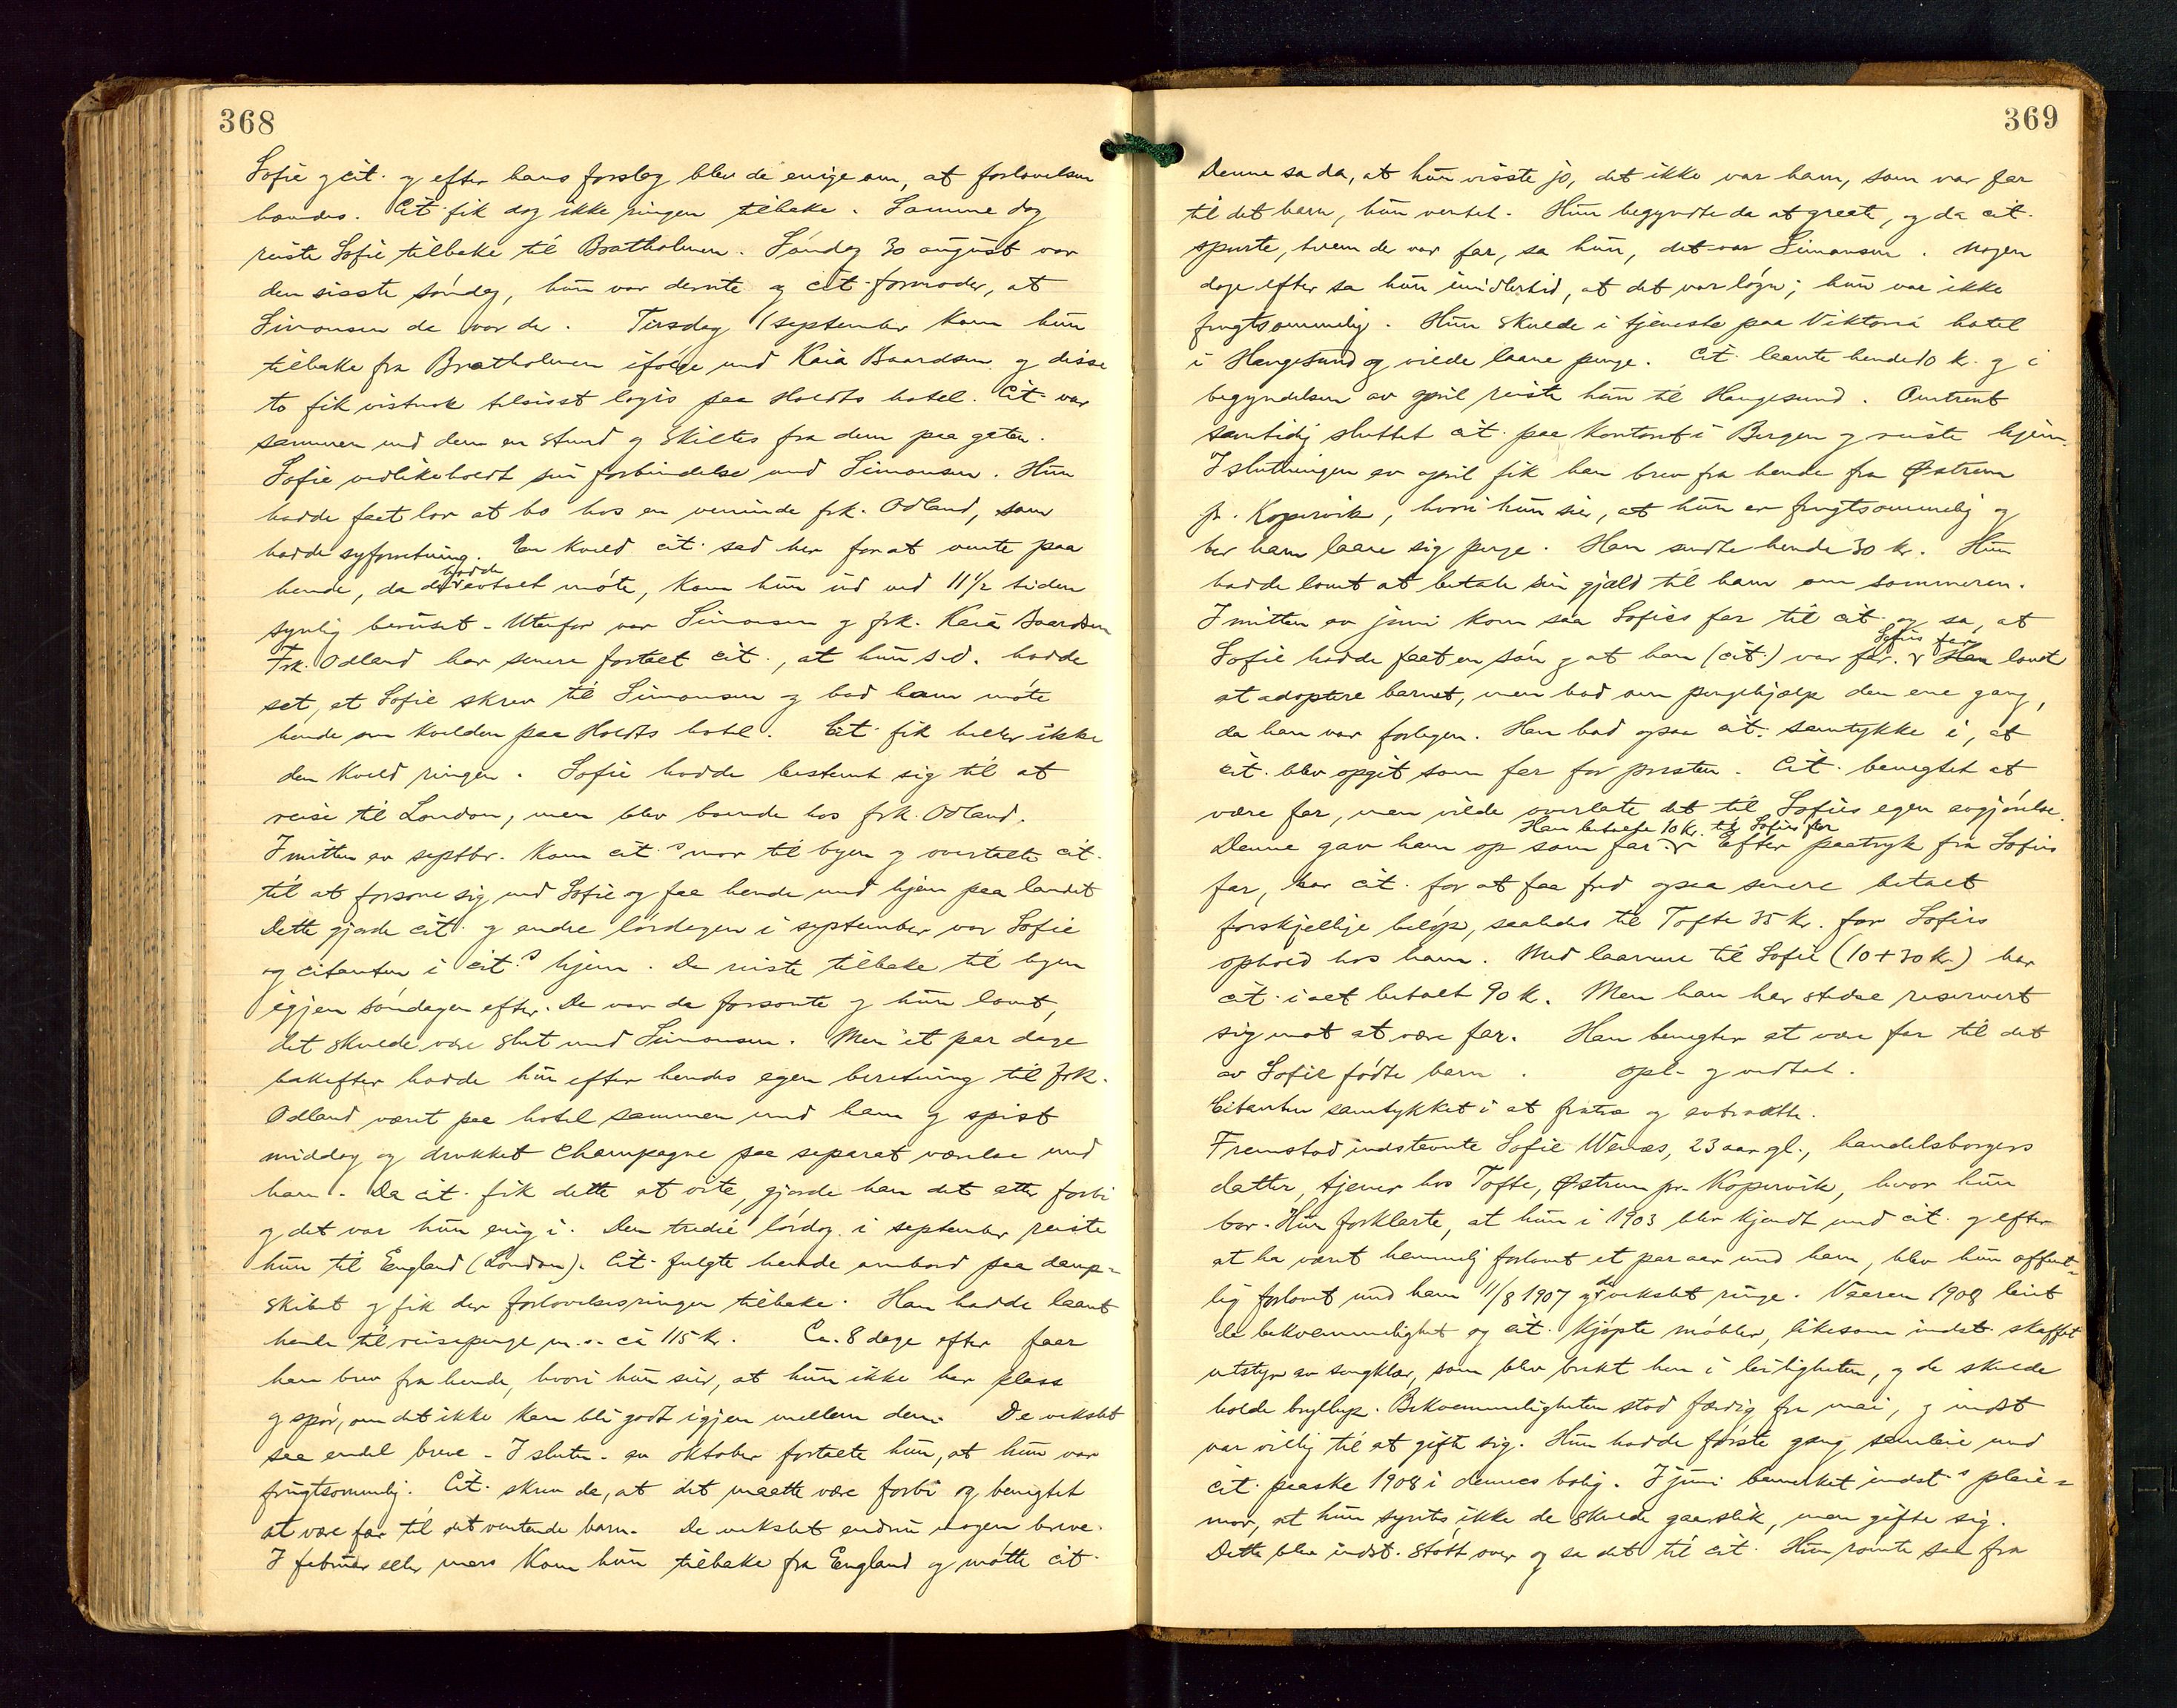 368
Sofie og cit. og efter hans forslag blev de enige om, at forlovelsen
hævdes. Cit. fik dog ikke ringen tilbake. Samme dag
reiste Sofie tilbake til Bratholmen. Søndag 30 august var
den sisste søndag, hun var derute og cit. formoder, at
Simonsen da var der. Tirsdag 1 september kom hun
tilbake fra Bratholmen ifølge med Kaia Baardsen og disse
to fik vistnok tilsisst logis paa Holdts hotel. Cit. var
sammen med dem en stund og skiltes fra dem paa gaten.
Sofie vedlikeholdt sin forbindelse med Simonsen. Hun
hadde faat lov at bo hos en veninde frk. Odland, som
hadde syforretning. En kveld cit. sad her for at vente paa
hende, da de hadde avtalt møte, kom hun ind ved 11½ tiden
synlig beruset. Utenfor var Simonsen og frk. Kaia Baardsen
Frk. Odland har senere fortalt cit., at hun s.d. hadde
set, at Sofie skrev til Simonsen og bad ham møte
hende om kvelden paa Holdts hotel. Cit. fik heller ikke
den kveld ringen. Sofie hadde bestemt sig til at
reise til London, men blev boende hos frk. Odland.
I mitten av septbr. kom cit.s mor til byen og overtalte cit.
til at forsone sig med Sofie og faa hende med hjem paa landet
Dette gjorde cit. og andre lørdagen i september var Sofie
og citanten i cit.s hjem. De reiste tilbake til byen
igjen søndagen efter. De var da forsonte og hun lovet,
det skulde være slut med Simonsen. Men et par dage
bakefter hadde hun efter hendes egen beretning til frk.
Odland været paa hotel sammen med ham og spist
middag og drukket champagne paa separat værelse med
ham. Da cit. fik dette at vite, gjorde han det atter forbi
og det var hun enig i. Den tredie lørdag i september reiste
hun til England (London). Cit. fulgte hende ombord paa damp-
skibet og fik der forlovelsesringen tilbake. Han hadde laant
hende til reisepenge m.v. ca 115 kr. Ca. 8 dage efter faar
han brev fra hende, hvori hun sier, at hun ikke har plass
og spør, om det ikke kan bli godt igjen mellem dem. De vekslet
saa endel breve. I slutn. av oktober fortalte hun, at hun var
frugtsommelig. Cit. skrev da, at det maatte være forbi og benegtet
at være far til det ventende barn. De vekslet endnu nogen breve.
I februar eller mars kom hun tilbake fra England og møtte cit.
369
Denne sa da, at hun visste jo, det ikke var ham, som var far
til det barn, hun ventet. Hun begyndte da at graate, og da cit.
spurte, hvem da var far, sa hun, det var Simonsen. Nogen
dage efter sa hun imidlertid, at det var løgn; hun var ikke
frugtsommelig. Hun skulde i tjeneste paa Viktoria hotel
i Haugesund og vilde laane penge. Cit. laante hende 10 k. og i
begyndelsen av april reiste hun til Haugesund. Omtrent
samtidig sluttet cit. paa kontoret i Bergen og reiste hjem.
I slutningen av april fik han brev fra hende fra Østrem
pr. Kopervik, hvori hun sier, at hun er frugtsommelig og
ber ham laane sig penge. Han sendte hende 30 kr. Hun
hadde lovet at betale sin gjæld til ham om sommeren.
I mitten av juni kom saa Sofies far til cit. og sa, at
Sofie hadde faat en søn og at han (cit.) var far. Sofies far lovet
at adoptere barnet, men bad om pengehjælp den ene gang,
da han var forlegen. Han bad ogsaa cit. samtykke i, at
cit. blev opgit som far for presten. Cit. benegtet at
være far, men vilde overlate det til Sofies egen avgjørelse.
Denne gav ham op som far. Han betalte 10 kr. til Sofies far Efter paatryk fra Sofies
far, har cit. for at faa fred ogsaa senere betalt
forskjellige beløp, saaledes til Tofte 35 kr. for Sofies
ophold hos ham. Med laanene til Sofie (10 + 30 kr.) har
cit. i alt betalt 90 k. Men han har stedse reservert
sig mot at være far. Han benegter at være far til det
av Sofie fødte barn. Opl. og vedtat.
Citanten samtykket i at fratræ og avtraatte.
Fremstod indstevnte Sofie Wenæs, 23 aar gl., handelsborgers
datter, tjener hos Tofte, Østrem pr. Kopervik, hvor hun
bor. Hun forklarte, at hun i 1903 blev kjendt med cit. og efter
at ha været hemmelig forlovet et par aar med ham, blev hun offent-
lig forlovet med ham 11/8 1907 og de vekslet ringe. Vaaren 1908 leiet
de bekvemmelighet og cit. kjøpte møbler, likesom indst. skaffet
utstyr av sengklær, som blev brakt hen i leiligheten, og de skulde
holde bryllup. Bekvemmeligheten stod færdig fra mai, og indst
var villig til at gifte sig. Hun hadde første gang samleie med
cit. paaske 1908 i dennes bolig. I juni bemerket indst.s pleie-
mor, at hun syntes ikke de skulde gaa slik, men gifte sig.
Dette blev indst. støtt over og sa det til cit. Hun rømte saa fra